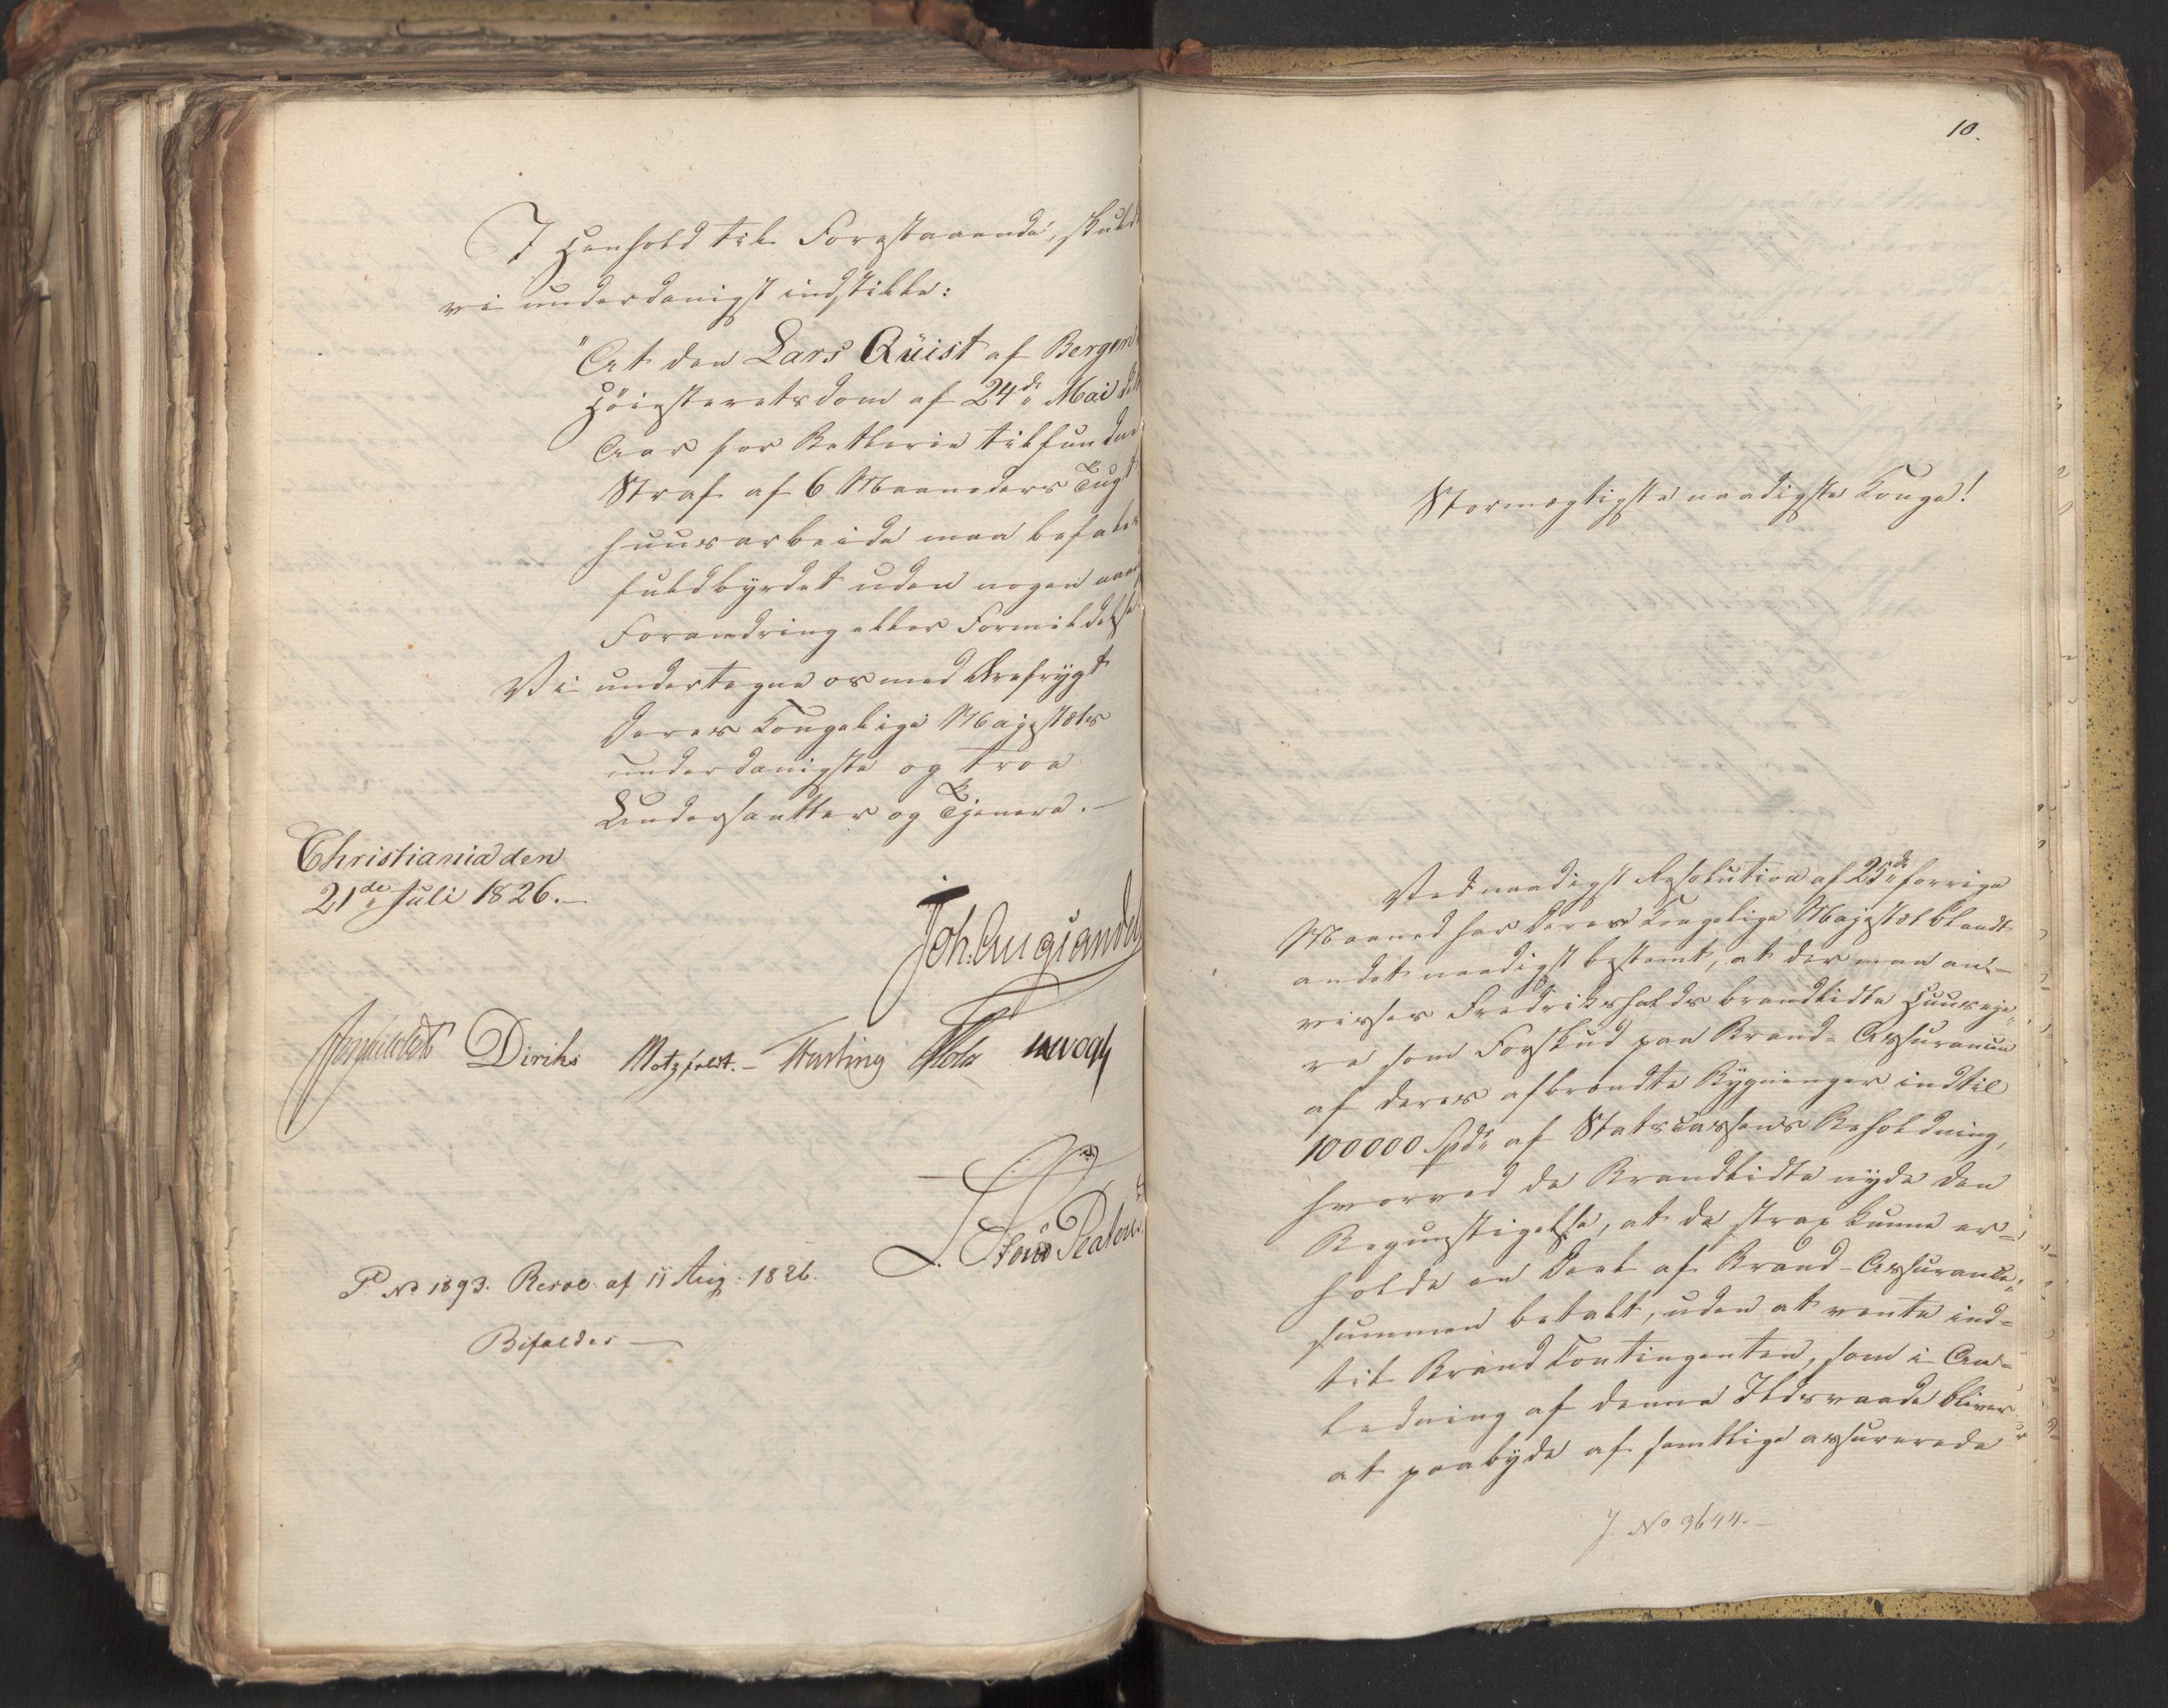 I Henhold til Forestaaende, skulde
vi underdanigst indstille:
"At den Lars Quist af Bergen
Höiesteretsdom af 24de Mai
Aar for Betlerie tilfundne
Straf af 6 Maaneders Tugt
huusarbeide maa befales
fuldbyrdet uden nogen naad
Forandring eller Formildelse
Vi undertegne os med Ærefrygt
Deres Kongelige Majestæts
underdanigste og troe
Undersaatter og Tjenere.-
Christiania den
21de Juli 1826.-
Joh. Aug: Sandels
Diriks Motzfeldt.-
P No 1893. Resol. af 11 Aug: 1826.
Bifaldes -
10.
Stormægtigste naadigste Konge!
Ved naadigst Resolution af 25de forrige
Maaned har Deres Kongelige Majestæt blandt
andet naadigst bestemt, at der maa an-
vises Fredrikshalds brandlidte Huuseje-
re som Forskud paa Brand-Assurancen
af deres afbrændte Bygninger indtil
100000 Spdr af Statscassens Beholdning,
hvorved de Brandlidte nyde den
Begunstigelse, at de strax kunne er-
holde en Deel af Brand-Assurance-
summen betalt, uden at vente ind-
til Brand Contingenten, som i An-
ledning af denne Ildsvaade bliver
at paabyde af samtlige assurerede
J. No 3644.-